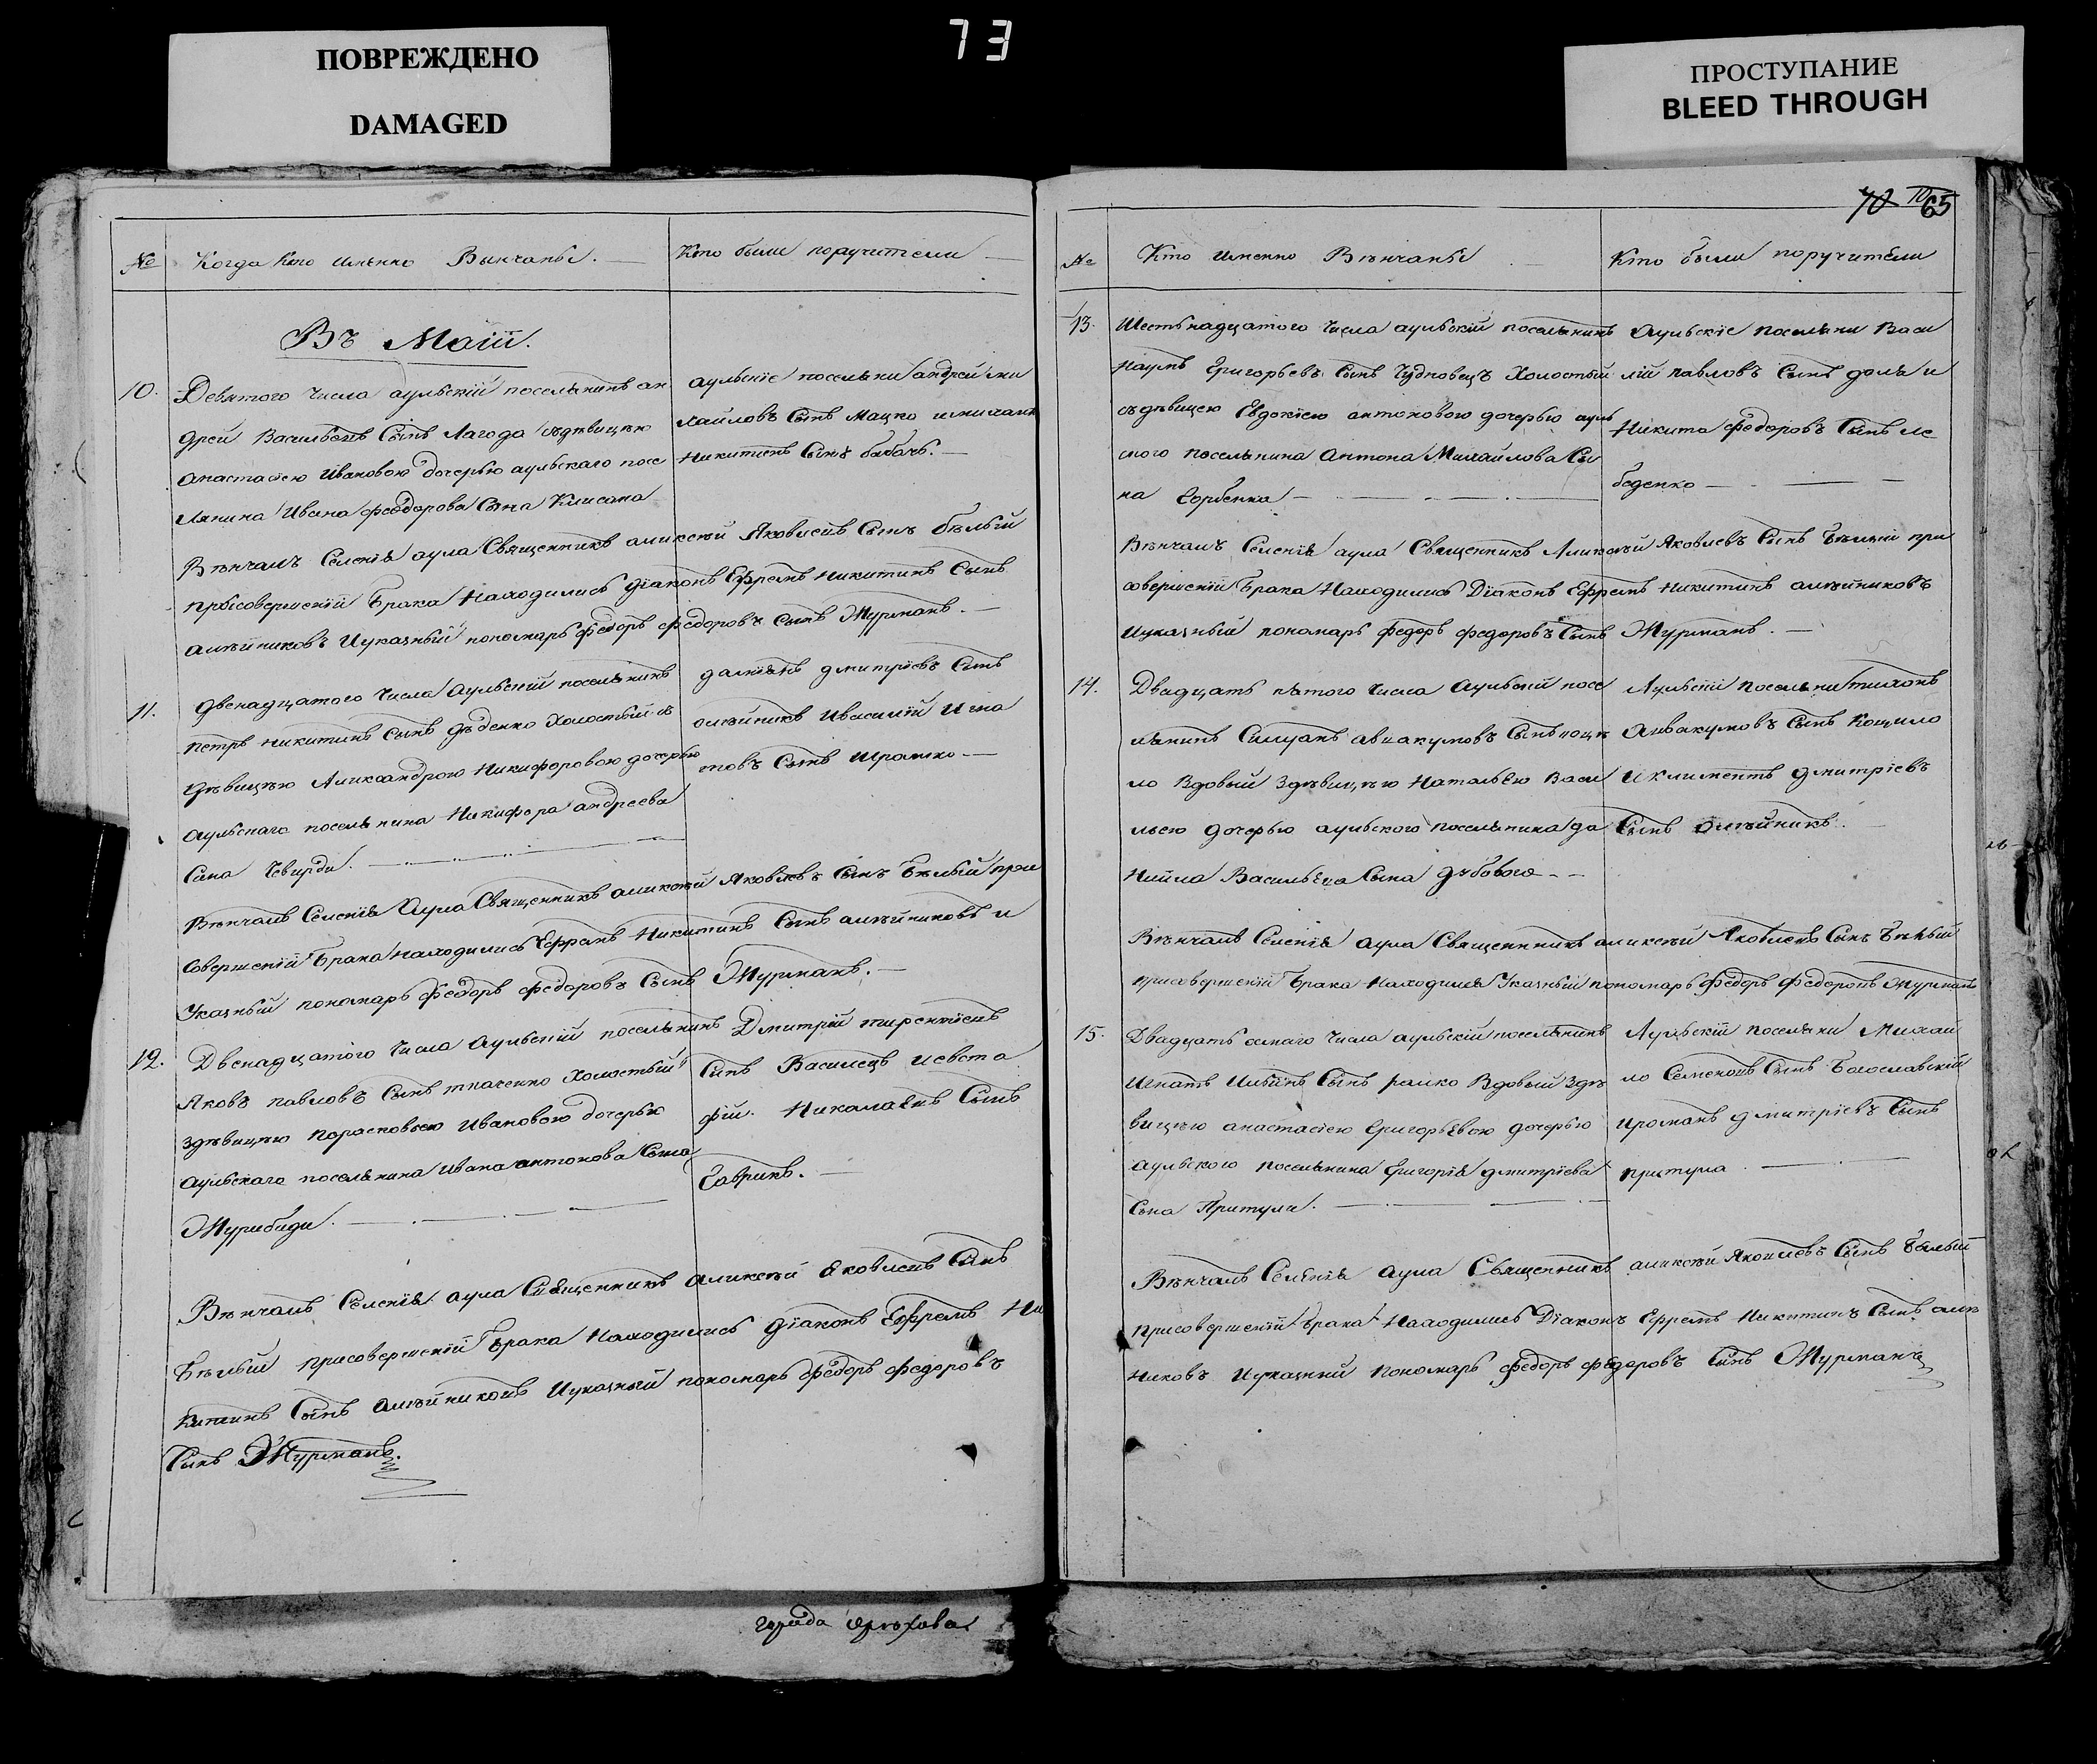 ПОВРЕЖДЕНО
DAMAGED
73
ПРОСТУПАНИЕ
BLEED THROUGH
№ Когда Кто именно Венчаны. Кто были поручители
Въ Маіи.
10. Девятого Числа аульскій поселянинъ ан
дрей Васильевъ Сынъ Лагода здѣвицею
анастасіею Ивановою дочерью аульскаго посе
лянина Ивана феодорова Сына
аульскіе поселяни андрей ми
хайловъ Сынъ Мацко
Никитинъ Сынъ бабачъ.
Вѣнчалъ Селенія аула Священникъ аликсѣй Яковлевъ Сынъ бѣлый
присовершеніи Брака Находились діаконъ Ефремъ Никитинъ Сынъ
алѣйниковъ Иуказный пономарь федоръ федоровъ Сынъ Журманъ.
11. двенадцатого Числа Аульскій поселянинъ
петръ Никитинъ Сынъ дѣденко Холостый съ
дѣвицею Александрою Никифоровою дочерью
аульскаго поселянина Никифора андреева
Сина Чевирди.
дмитріевъ Сынъ
олѣйникъ Ивасилій Игна
товъ Сынъ
Вѣнчалъ Селенія Аула Священникъ аликсѣй Яковлевъ Сынъ Бѣлый при
Совершеніи Брака находились Ефремъ Никитинъ Сынъ алѣйниковъ и
Указный пономарь федоръ федоровъ Сынъ Журманъ.
12. Двенадцатого Числа Аульскій поселянинъ
Яковъ павловъ Сынъ ткаченко Холостый
здѣвицею Парасковьею Ивановою дочерью
аульскаго поселянина Ивана антонова Сина
Журибиди.
Дмитрій тирентіевъ
Синъ Василецъ Иевста
фій Николаевъ Сынъ
Гавринъ.
Вѣнчалъ Селенія аула Священникъ аликсѣй Яковлевъ Синъ
Бѣлый присовершеніи Брака Находились діаконъ Ефремъ Ни
китинъ Сынъ алѣйниковъ Иуказный пономарь федоръ федоровъ
Синъ Журманъ.
города орѣхова
70 65
№ Кто именно Вѣнчаны Кто были поручители
13. Шестьнадцатого Числа аульскій поселянинъ
Наумъ Григорьевъ Сынъ Чудновецъ Холостый
съдѣвицею Евдокіею антоновою дочерью ауль
ского поселянина Антона Михайлова Сы
на Горбенка
Аульскіе поселяни Васи
лій павловъ Сынъ доля и
Никита федоровъ Сынъ ле
беденко
Вѣнчалъ Селенія аула Священникъ Аликсѣй Яковлевъ Сынъ Бѣлый при
совершеніи Брака Находились Діаконъ Ефремъ Никитинъ алѣйниковъ
Иуказный пономарь федоръ федоровъ Сынъ Журманъ.
14. Двадцать пятого Числа Аульскій посе
лянинъ Силуанъ авакумовъ Сынъ коци
ло Вдовый Здѣвицею Натальею Васи
льею дочерью аульского поселянина да
Нийла Васильева Сына дубового
Аульскіи поселяни тихонъ
Аввакумовъ Сынъ Коцило
Иклиментъ дмитріевъ
Сынъ олѣйникъ.
Вѣнчалъ Селенія аула Священникъ аликсѣй Яковлевъ Сынъ Бѣлый
присовершеніи Брака Находился Указный пономарь федоръ федоровъ Журманъ
15. Двадцать осмаго Числа аульскій поселянинъ
Игнатъ Ильинъ Сынъ рашко Вдовый Здѣ
вицею анастасіею Григорьевою дочерью
аульского поселянина Григорія дмитріева
Сына Притули.
Аульскіи поселяни Михай
ло Семеновъ Сынъ Богославскій
Ироманъ дмитріевъ Сынъ
притула
Вѣнчалъ Селенія аула Священникъ аликсѣй Яковлевъ Сынъ Бѣлый
присовершеніи Брака Находились Діаконъ Ефремъ Никитинъ Сынъ алѣ
никовъ Иуказный пономарь федоръ федоровъ Сынъ Журманъ